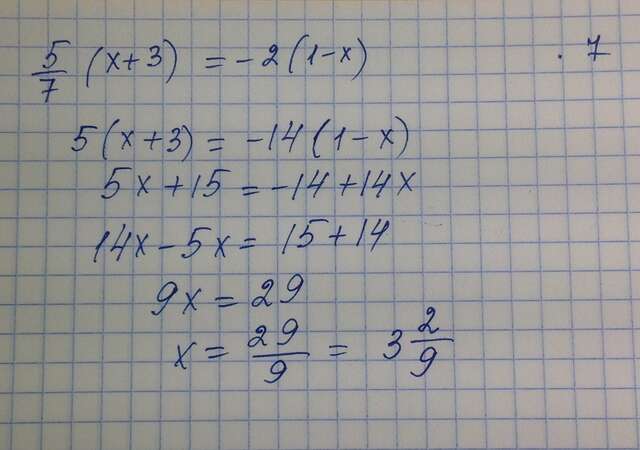 5/7 (x+3) = -2(1-x) · 7
5(x+3) = -14(1-x)
5x+15 = -14+14x
14x-5x = 15+14
9x = 29
x = 29/9 = 3 2/9